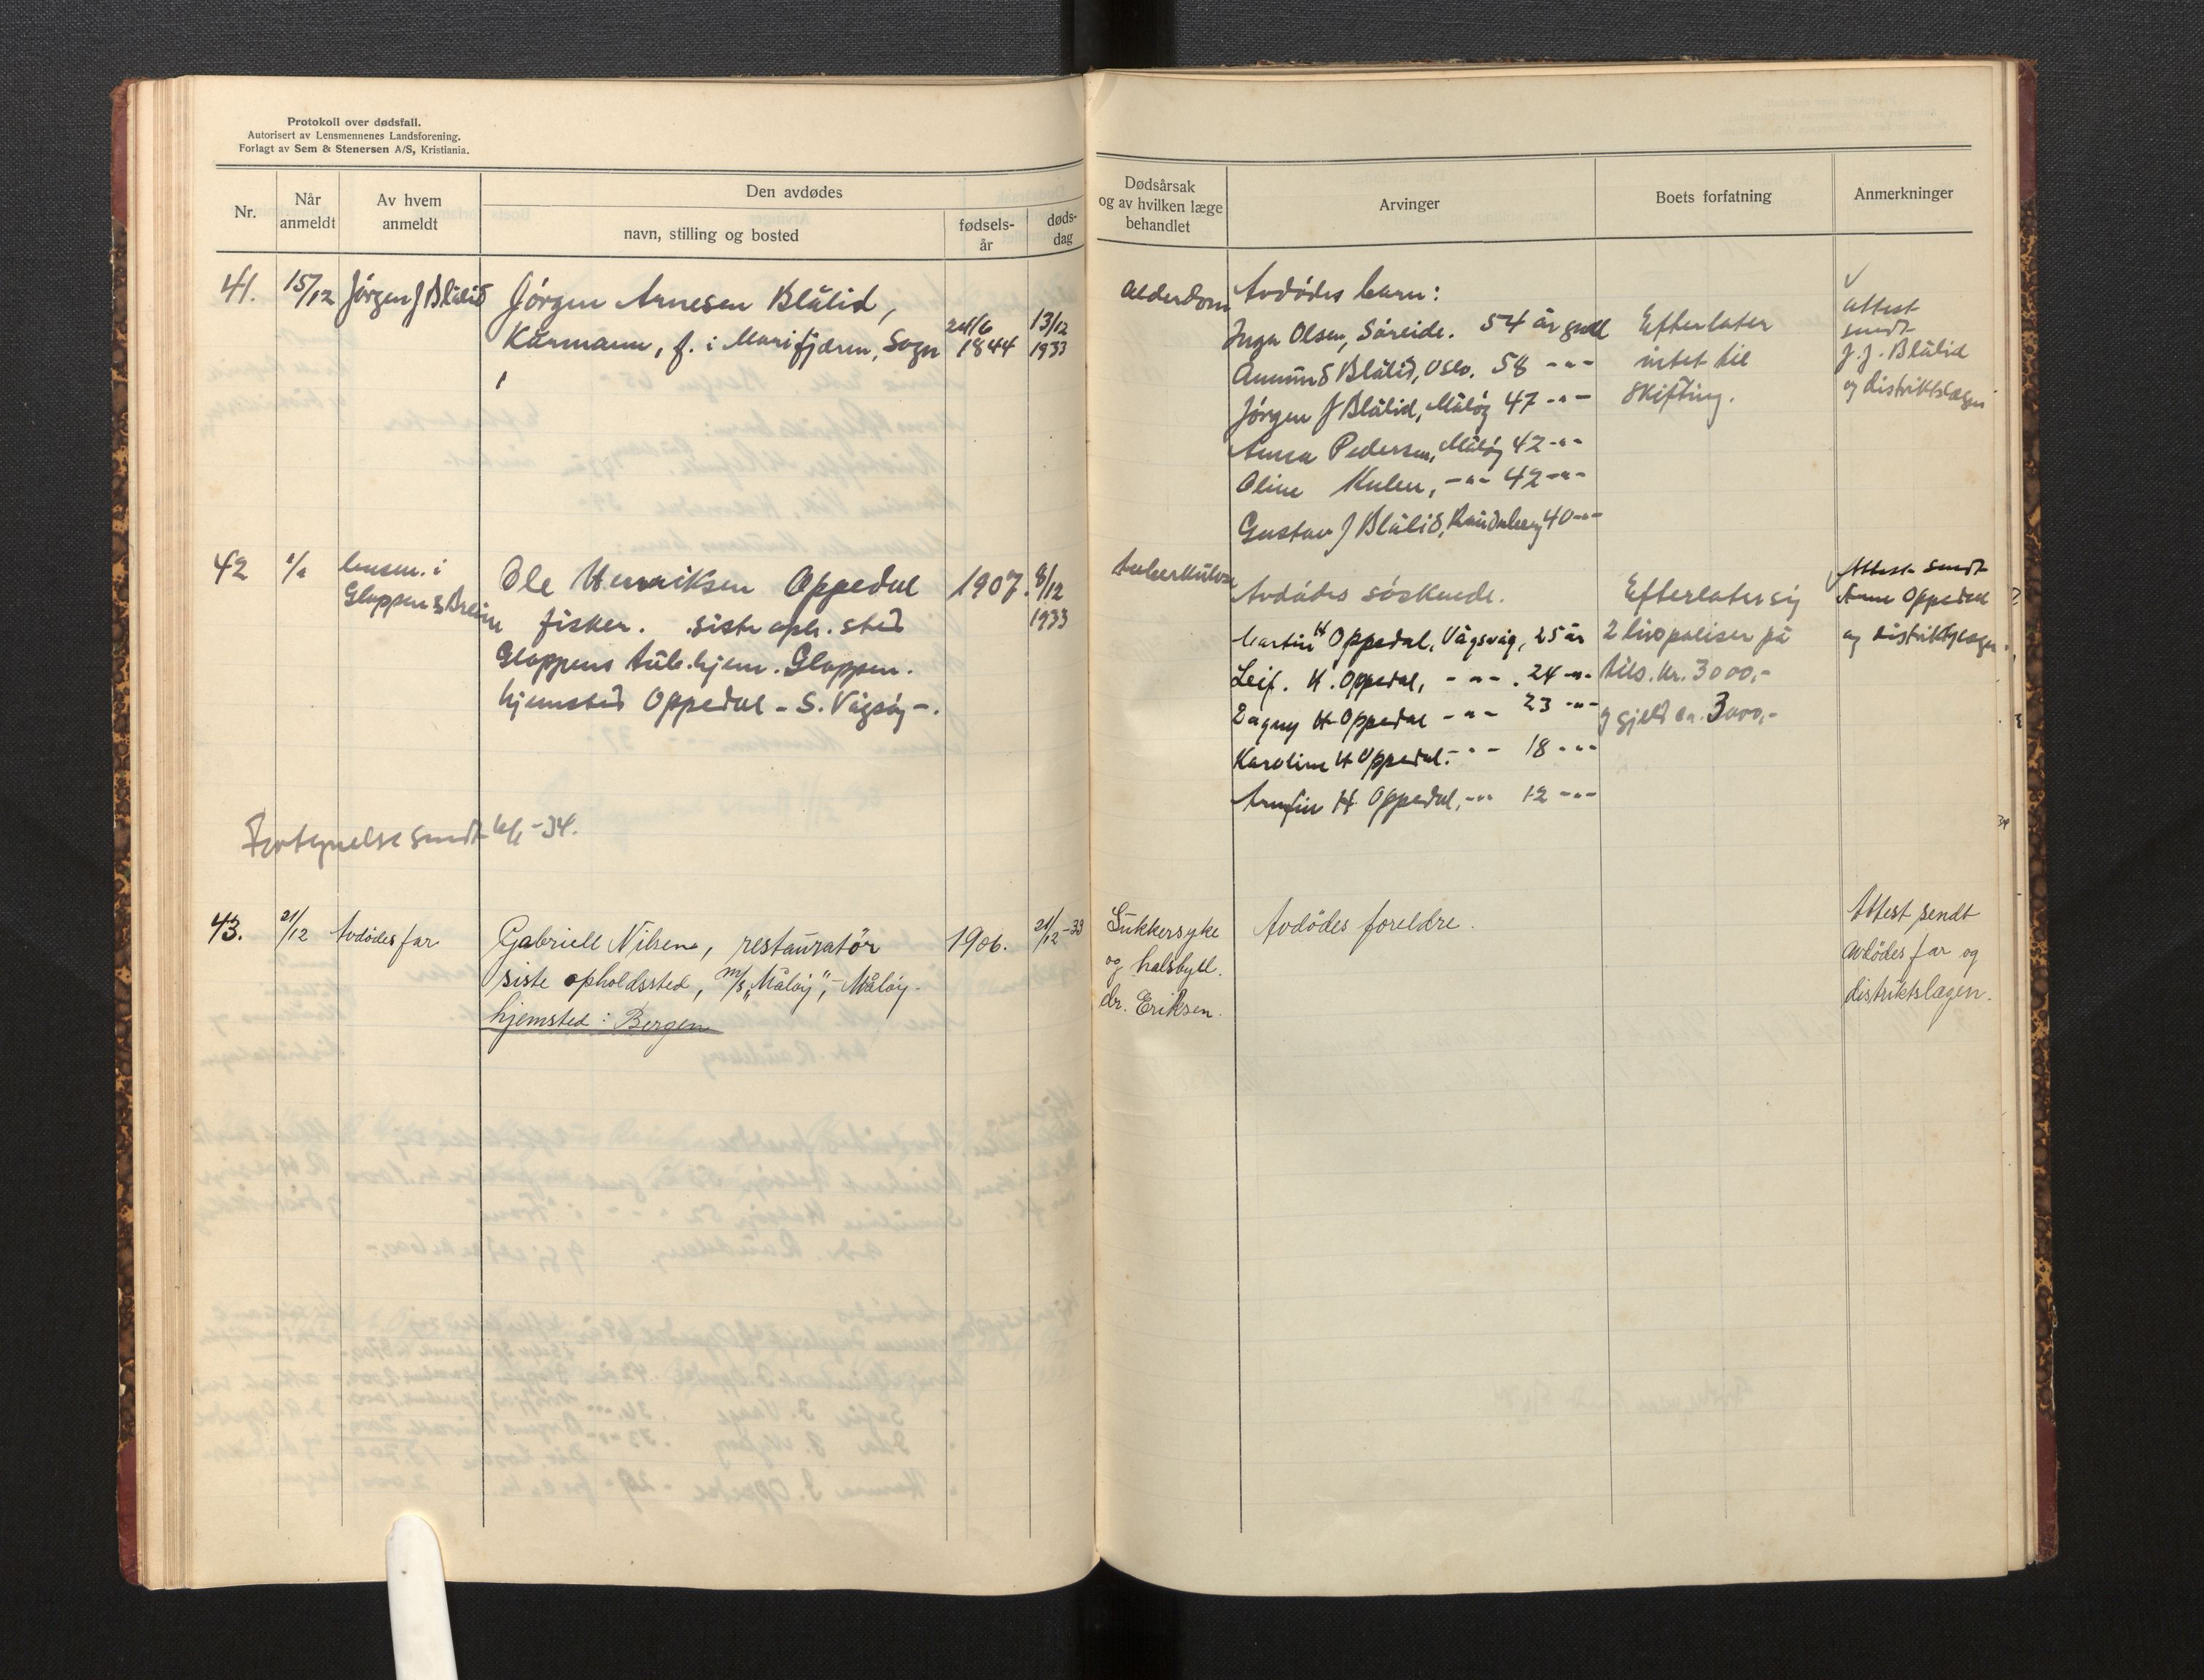 Protokoll over dødsfall.
Autorisert av Lensmennenes Landsforening.
Forlagt av Sem & Stenersen A/S, Kristiania.
Nr.
Når anmeldt
Av hvem anmeldt
Den avdødes
navn, stilling og bosted
fødsels-år
døds-dag
Dødsårsak og av hvilken læge behandlet
Arvinger
Boets forfatning
Anmerkninger
41. 15/12 Jørgen J Blålid
Jørgen Arnesen Blålid,
Kårmann, f. i Marifjæren, Sogn
24/6 1844
13/12 1933
Alderdom
Avdødes barn:
Inga Olsen, Søreide. 54 år gml
Anmund Blålid, Oslo. 58 -"-
Jørgen J Blålid, Måløy 47 -"-
Anna Pedersen, Måløy 42 -"-
Oline Kulen, -"- 42 -"-
Gustav J Blålid, Raudeberg 40 -"-
Efterlater
intet til
skifting.
attest
sendt
J. J. Blålid
og distriktslægen
42
lensm. i
Gloppen & Breim
Ole Henriksen Oppedal
fisker. siste oph. sted
Gloppens tub.hjem. Gloppen.
hjemsted Oppedal - S. Vågsøy -.
1907.
8/12
1933
tuberkulose
Avdødes søskende.
Martin H Oppedal, Vågsvåg, 25 år
Leif. H. Oppedal, -"- . 24 -"-
Dagny H Oppedal -"- 23 -"-
Karoline H Oppedal. -"- 18 -"-
Arnfin H Oppedal, -"- 12 -"-
Efterlater sig
2 livspoliser på
tils. kr. 3000,-
og gjeld ca. 3000,-
Attest sendt
Oppedal
og distriktslægen.
Fortegnelse sendt -34.
43. 21/12 Avdødes far
Gabriell Nilsene, restauratør
siste opholdssted, m/s "Måløy", - Måløy -
hjemsted: Bergen
1906.
21/12-33
Sukkersyke
og halsbyll.
dr. Eriksen.
Avdødes foreldre.
Attest sendt
avdødes far og
distriktslægen.